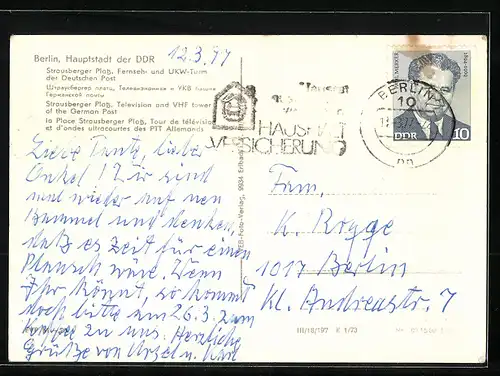 Berlin, Hauptstadt der DDR
12.3.77
Strausberger Platz, Fernseh- und UKW-Turm
der Deutschen Post
Штраусбергер платц, Телевизионная и УКВ башня
Германской почты
Strausberger Platz, Television and VHF tower
of the German Post
la Place Strausberger Platz, Tour de télévision
et d'ondes ultracourtes des PTT Allemands
HAUSHALT
VERSICHERUNG
BERLIN
DDR
10
Liebe Tante, lieber
Onkel! Wir sind
mal wieder auf nen
Bummel und denken,
daß es Zeit für einen
Plausch wäre. Wenn
Ihr könnt, so kommt
doch bitte am 26.3. zum
Kaffee zu uns. Herzliche
Grüße von Ursel u. Karl
Fam.
K. Rogge
1017 Berlin
Kl. Andreasstr. 7
III/18/197 K 1/73